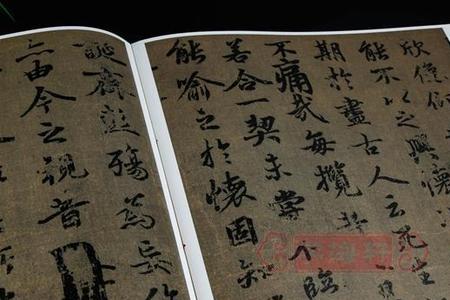 欣俛仰
能不以之興懷
期於盡古人云死生
不痛哉每攬昔
善合一契未嘗不臨
能喻之於懷固知
誕齊彭殤為妄
亦由今之視昔